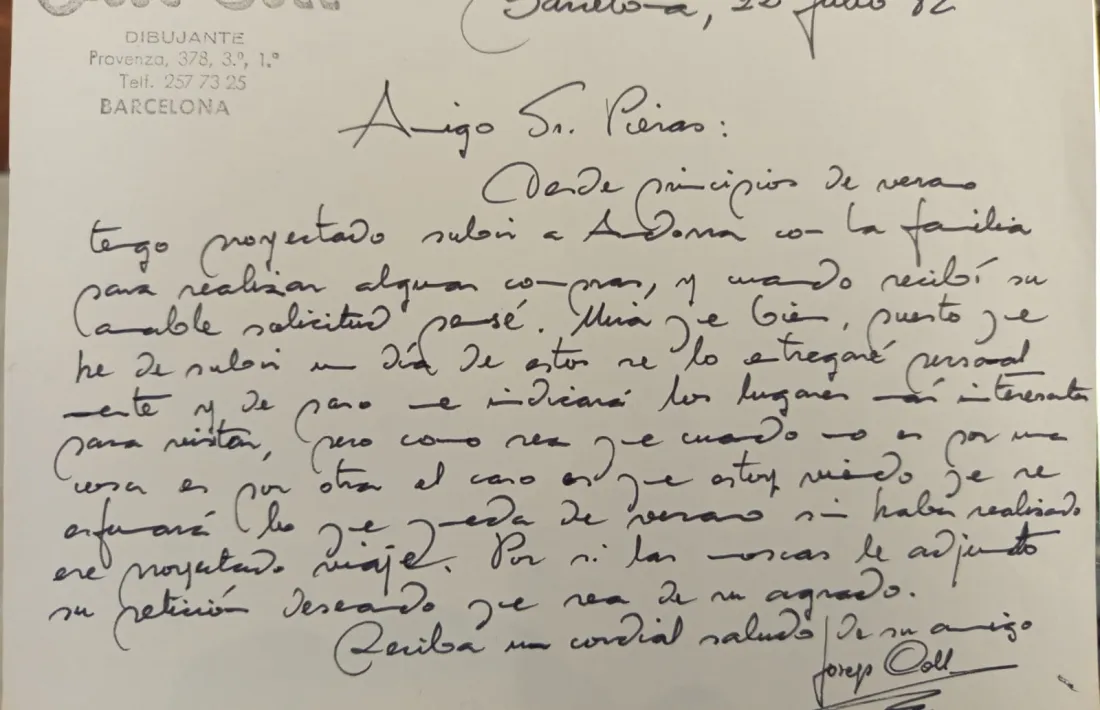 DIBUJANTE
Provenza, 378, 3.º, 1.ª
Telf. 257 73 25
BARCELONA
Barcelona, julio 82
Amigo Sr. Pieras:
Desde principios de verano
tengo proyectado subir a Andorra con la familia
para realizar algunas compras, y cuando recibí su
amable solicitud pensé. Mira que bien, puesto que
he de subir un día de estos se lo entregaré personal
mente y de paso me indicará los lugares más interesantes
para visitar, pero como sea que cuando no es por una
cosa es por otra el caso es que estoy viendo que se
esfumará lo que queda de verano sin haber realizado
ese proyectado viaje. Por si las moscas le adjunto
su petición deseando que sea de su agrado.
Reciba un cordial saludo de su amigo
Josep Coll